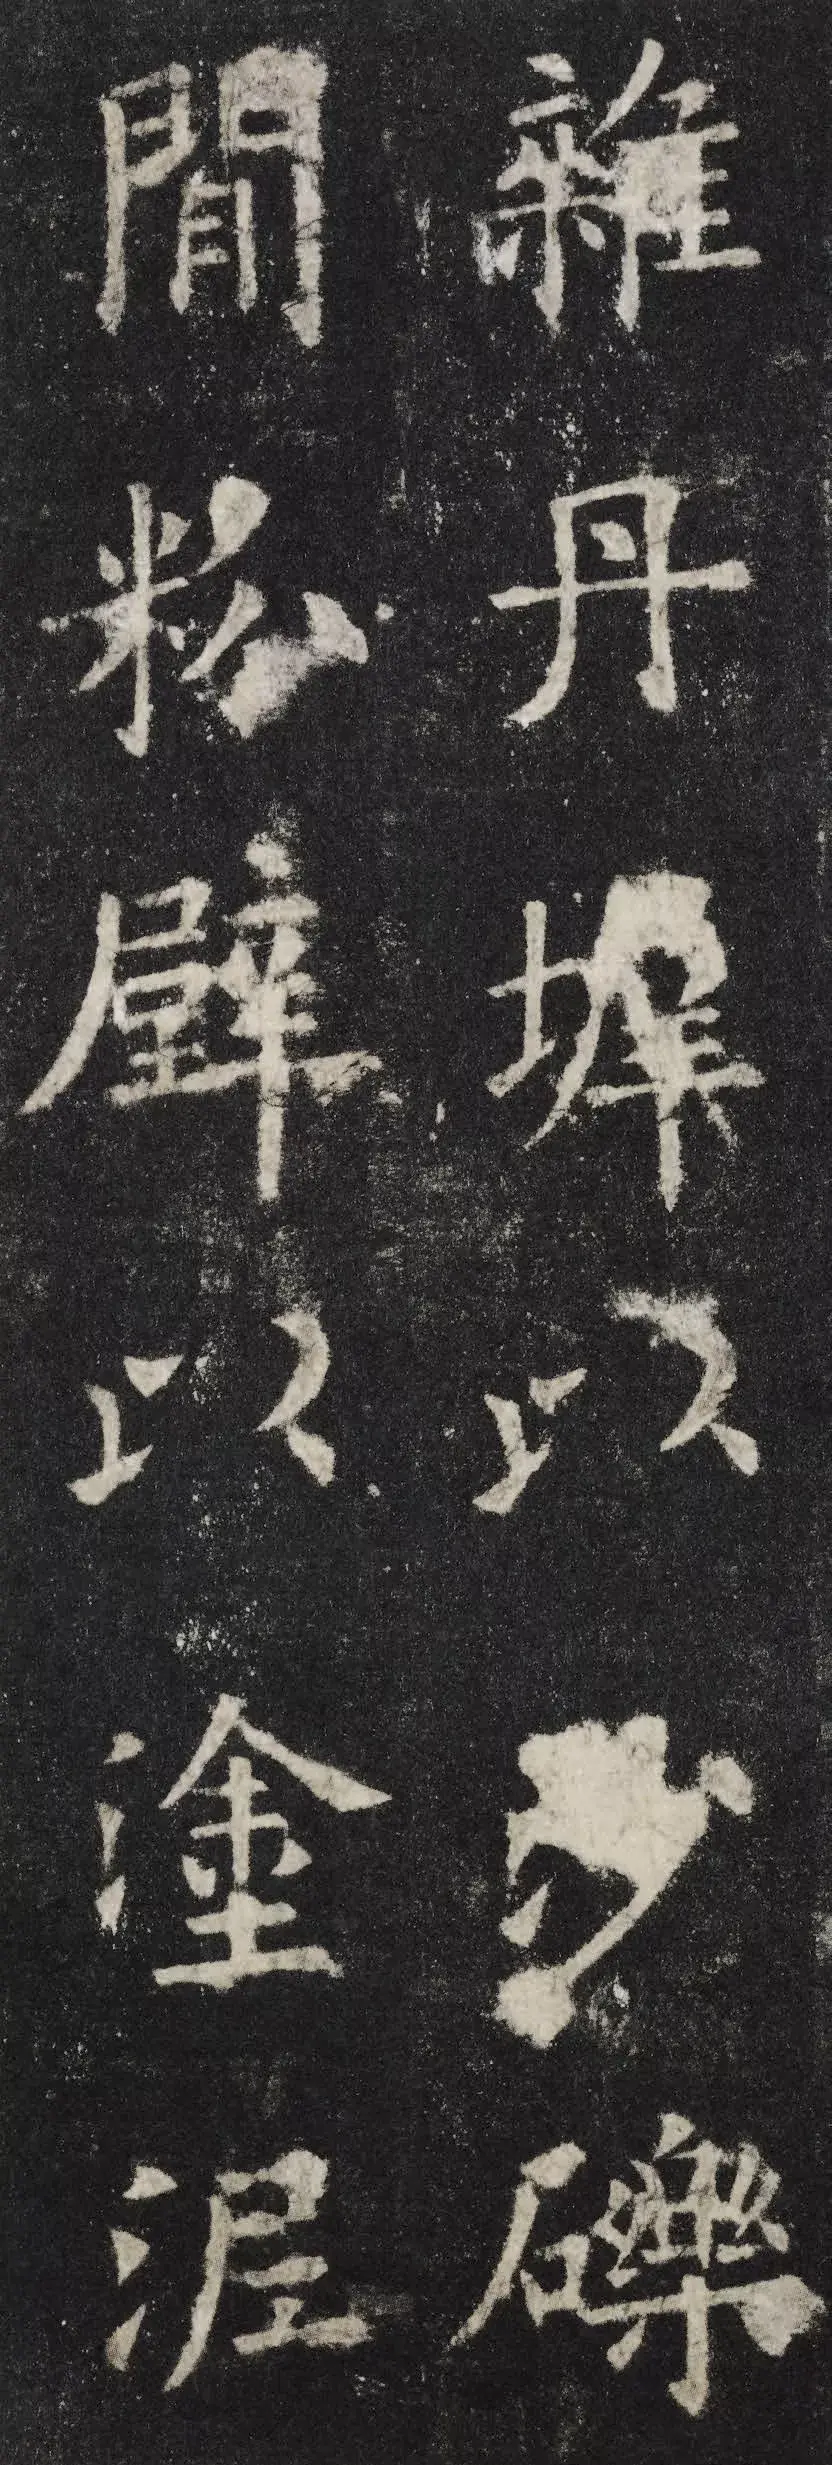 雜丹墀以沙礫
閒粉壁以塗泥